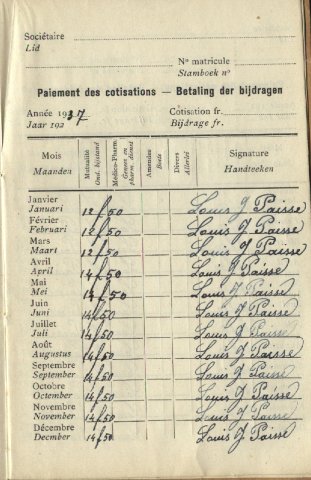 Sociétaire
Lid
N° matricule
Stamboek n°
Paiement des cotisations — Betaling der bijdragen
Année 1937
Cotisation fr.
Jaar 192
Bijdrage fr.
Mois
Maanden
Mutualité
Ond. bijstand
Medico-Pharm.
Geneesen
pharm. dienst
Amendes
Boete
Divers
Allerlei
Signature
Handteeken
Janvier
Januari 12 f 50 Louis J Paisse
Février
Februari 12 f 50 Louis J Paisse
Mars
Maart 12 f 50 Louis J Paisse
Avril
April 14 f 50 Louis J Paisse
Mai
Mei 14 f 50 Louis J Paisse
Juin
Juni 14 f 50 Louis J Paisse
Juillet
Juli 14 f 50 Louis J Paisse
Août
Augustus 14 f 50 Louis J Paisse
Septembre
September 14 f 50 Louis J Paisse
Octobre
October 14 f 50 Louis J Paisse
Novembre
November 14 f 50 Louis J Paisse
Décembre
December 14 f 50 Louis J Paisse